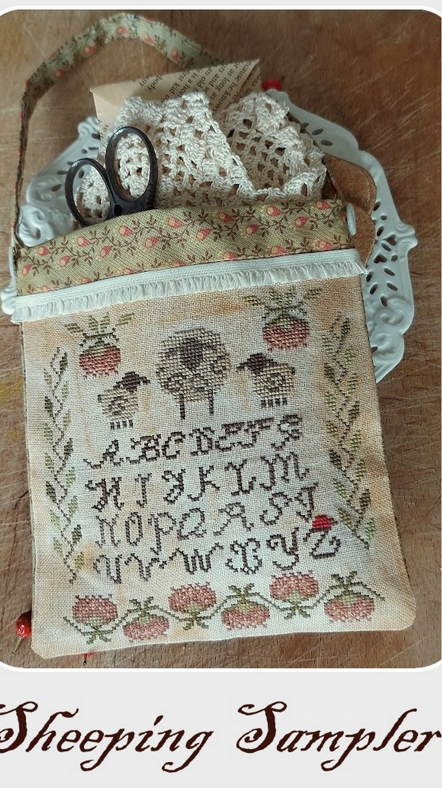 ABCDEFG
HIJKLM
NOPQRST
UVWXYZ
Sheeping Sampler